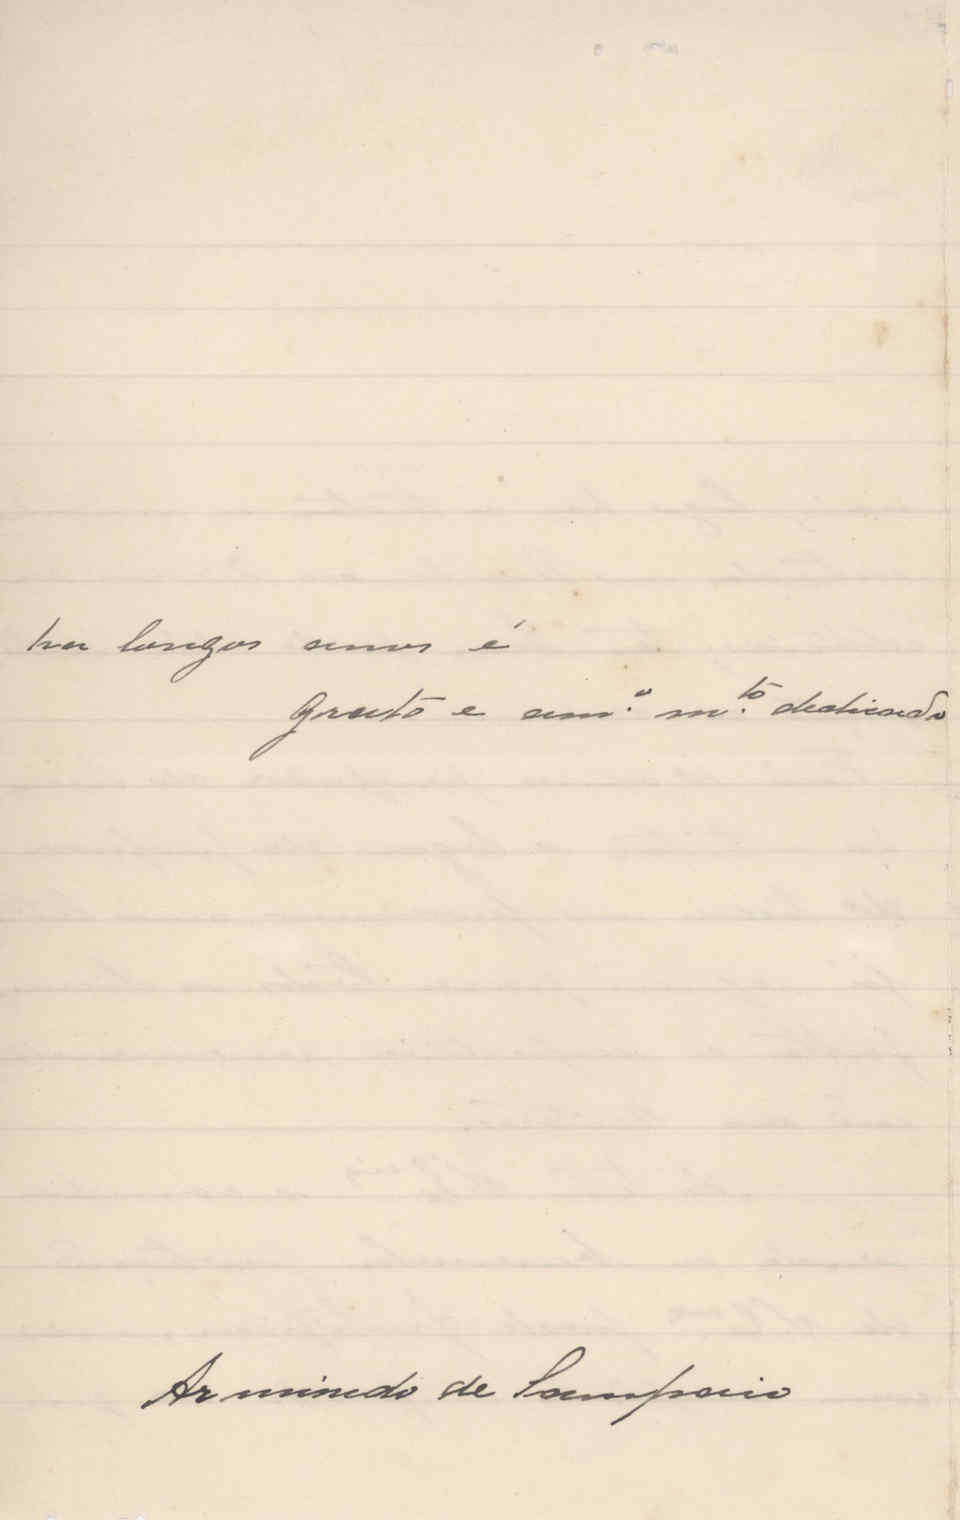 ha longos anos é
Grato e am.º m.to dedicado
Armindo de Sampaio